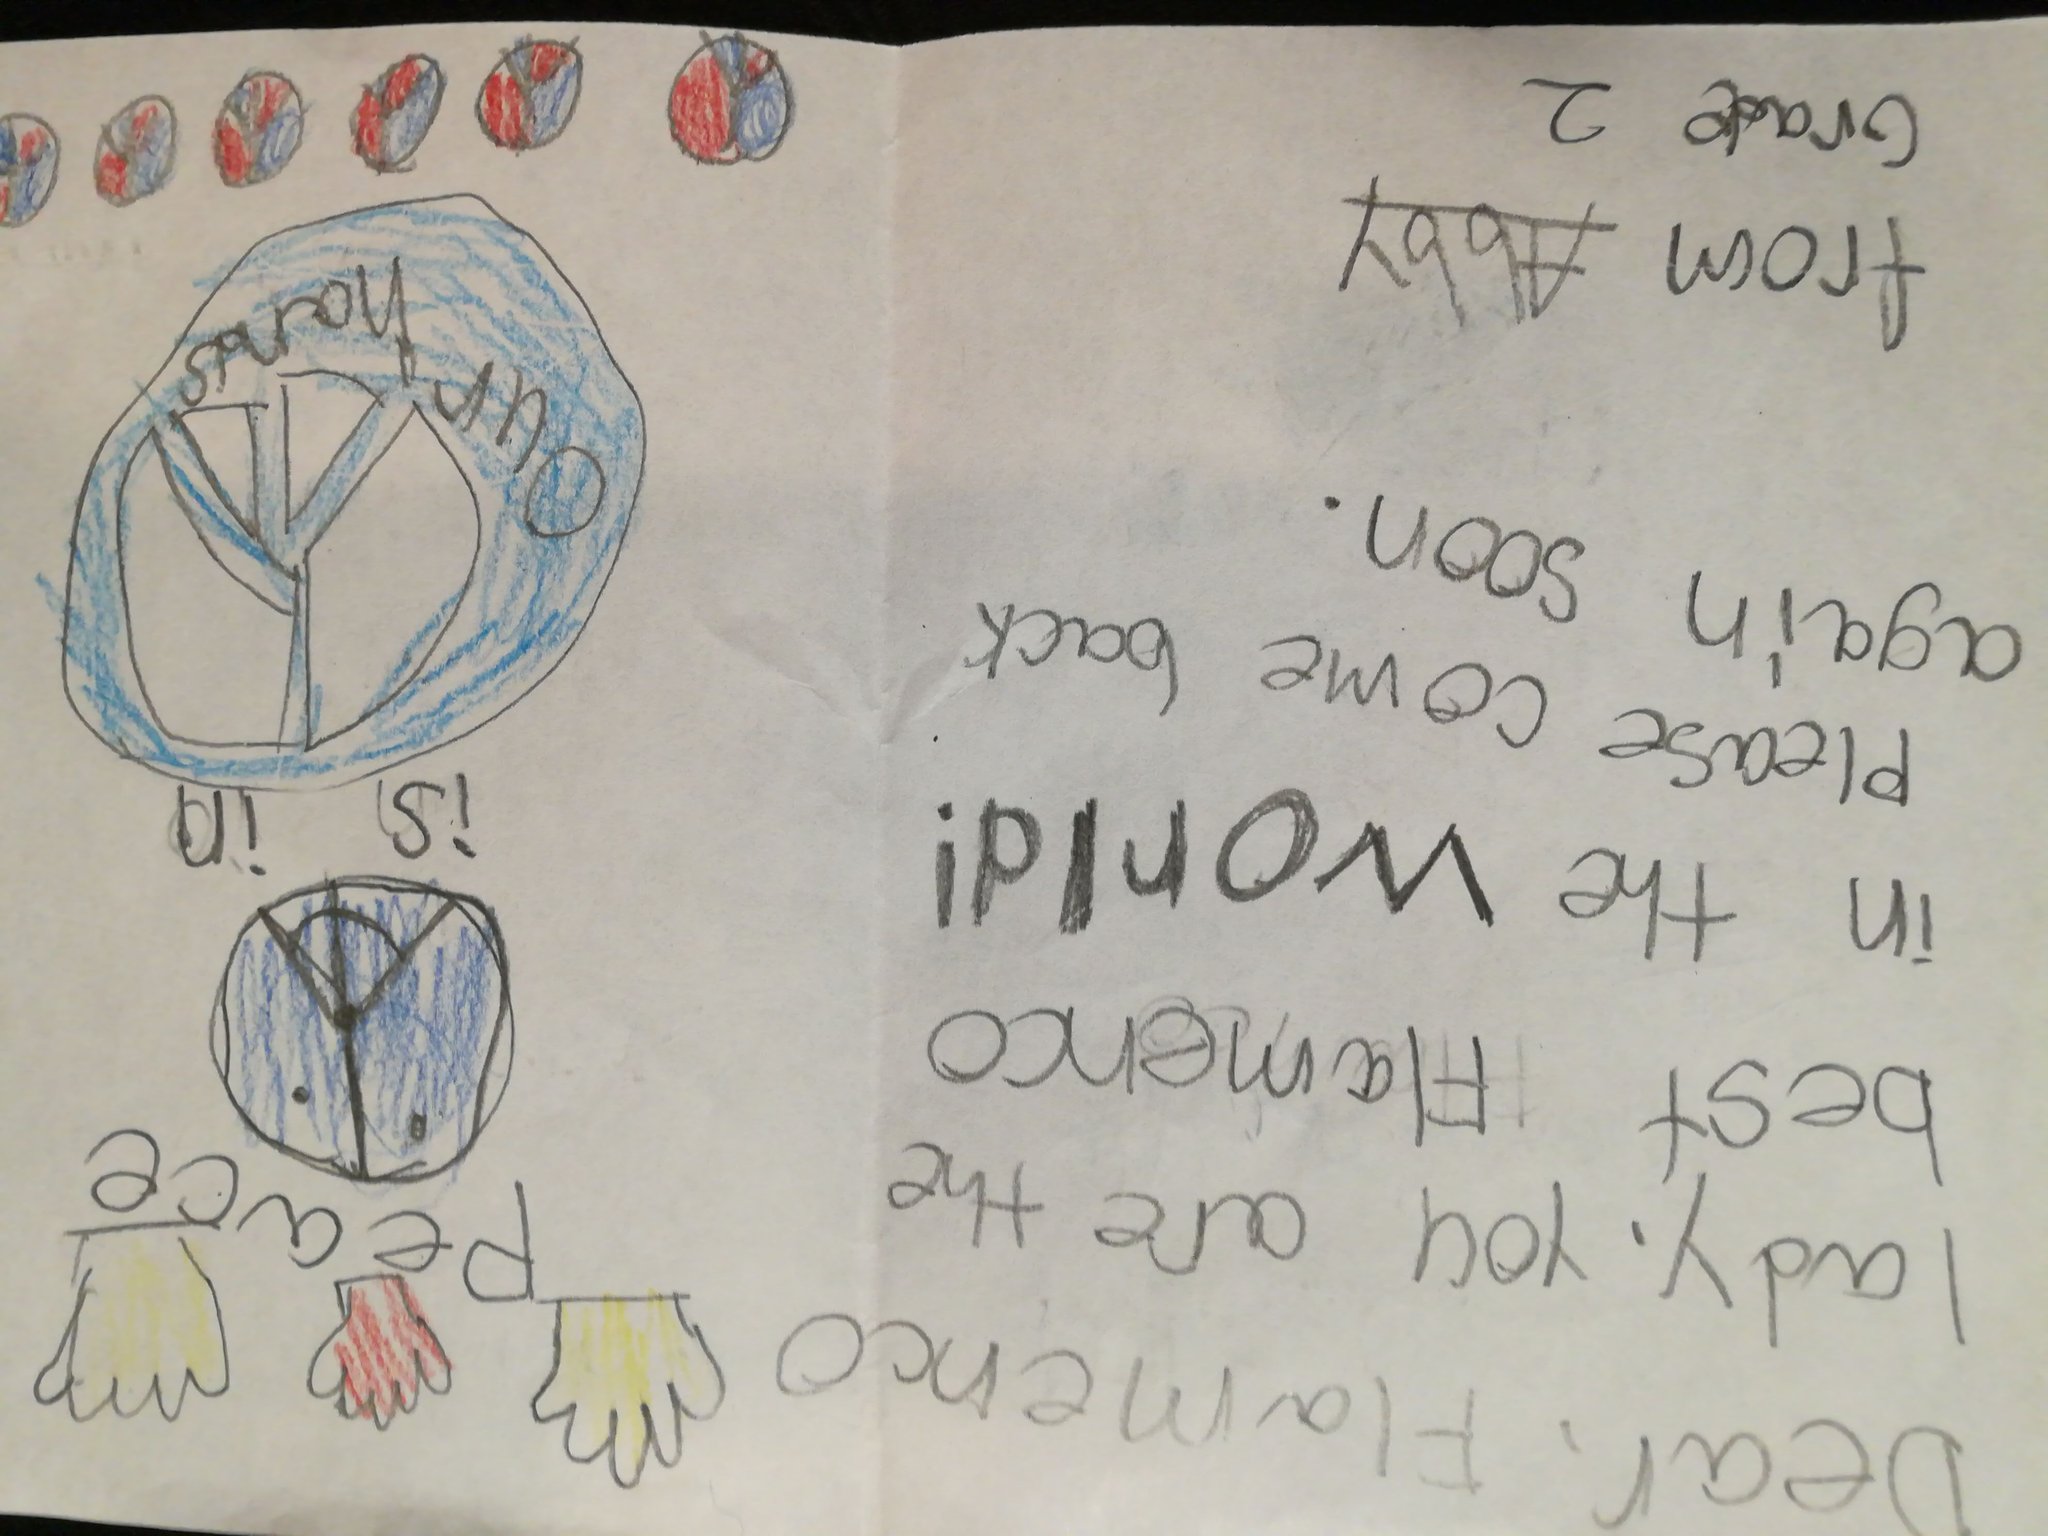 Dear, Flamenco
lady. You are the
best Flamenco
in the World!
Please come back
again soon.
from Abby
Grade 2
Peace
is in
Our Hands